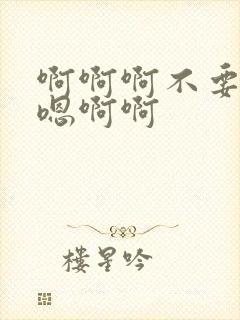 啊啊啊不要
嗯啊啊
楼星吟